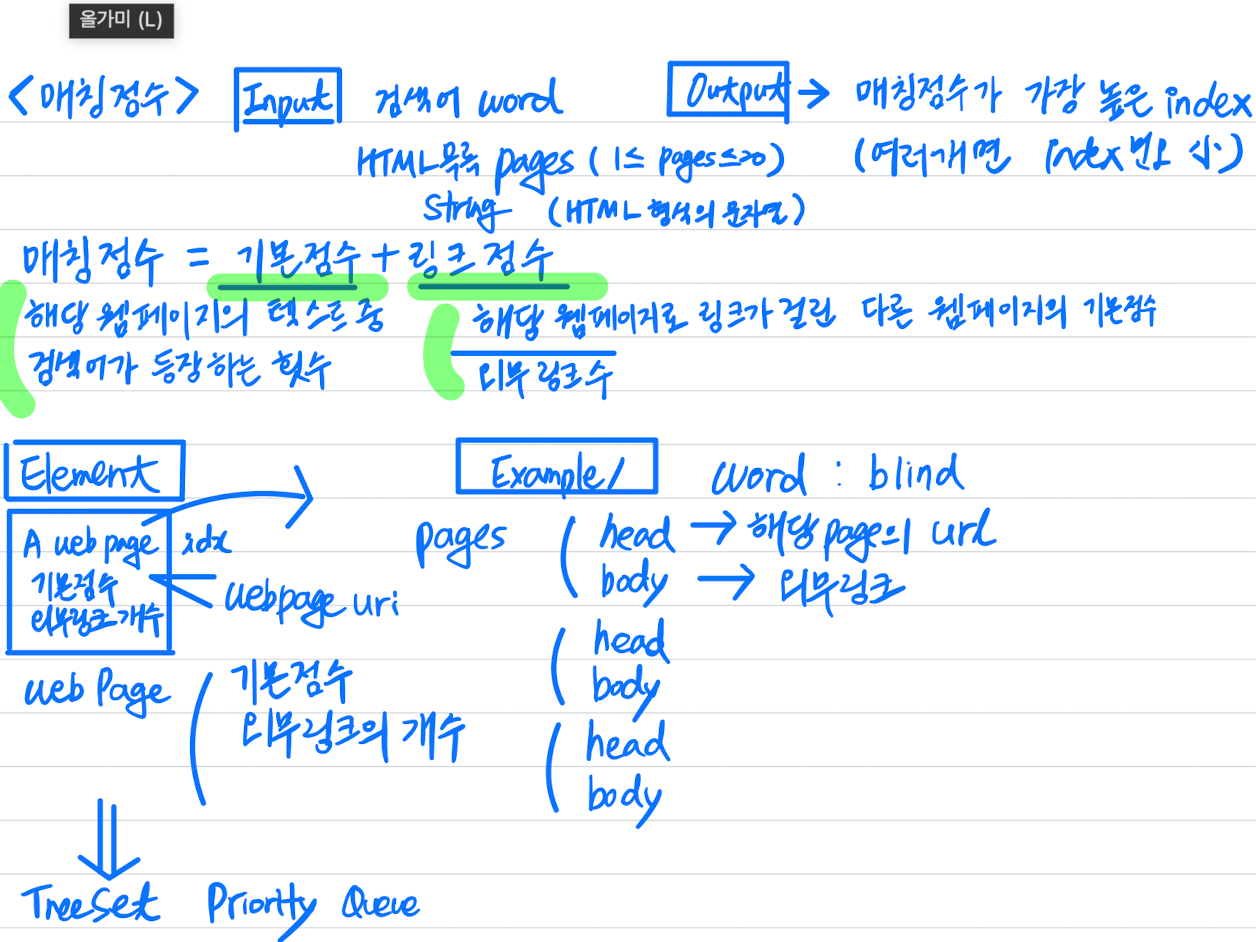 올가미 (L)
<매칭점수> Input 검색어 word Output → 매칭점수가 가장 높은 index
HTML목록 pages (1≤ pages≤20) (여러개면 index번호 小)
String (HTML 형식의 문자열)
매칭점수 = 기본점수 + 링크점수
해당 웹페이지의 텍스트 중
검색어가 등장하는 횟수
해당 웹페이지로 링크가 걸린 다른 웹페이지의 기본점수
외부링크수
Element
A web page idx
기본점수
외부링크 개수
webpage uri
web Page
기본점수
외부링크의 개수
TreeSet Priority Queue
Example/ word : blind
pages head → 해당 page의 url
body → 외부링크
head
body
head
body